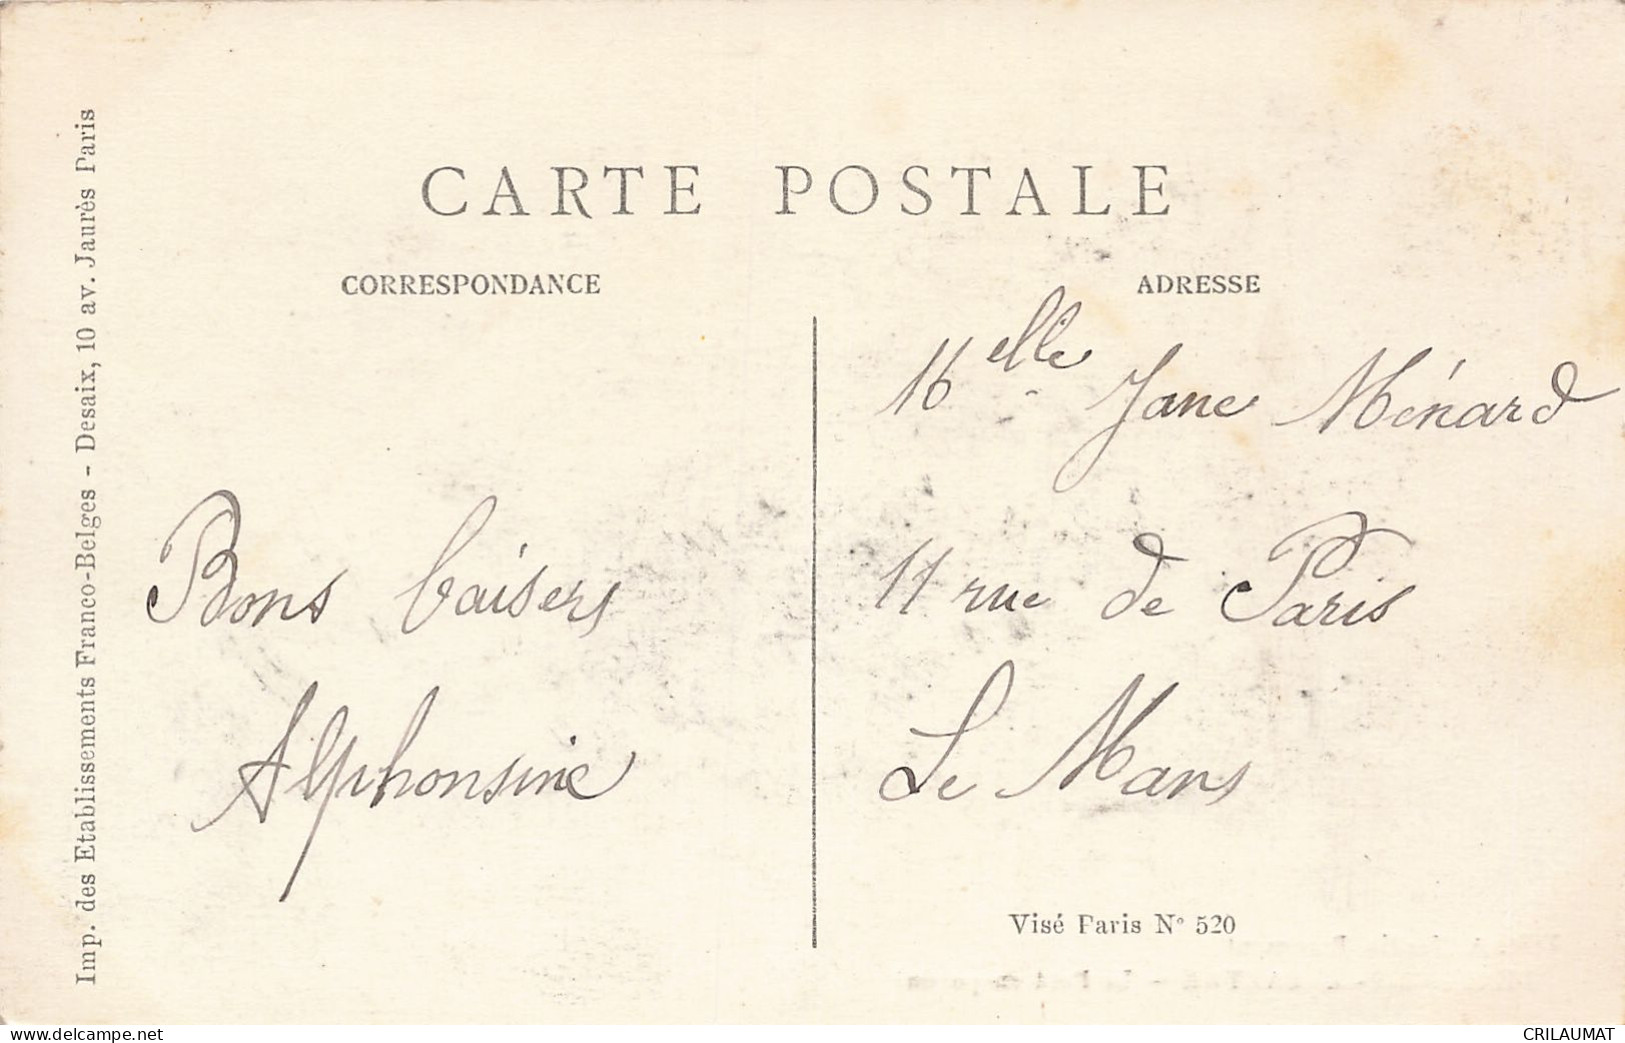 CARTE POSTALE
CORRESPONDANCE
ADRESSE
Imp. des Etablissements Franco-Belges - Desaix, 10 av. Jaurès Paris
Bons baisers
Alphonsine
Melle Jane Ménard
11 rue de Paris
Le Mans
Visé Paris N° 520
www.delcampe.net
CRILAUMAT